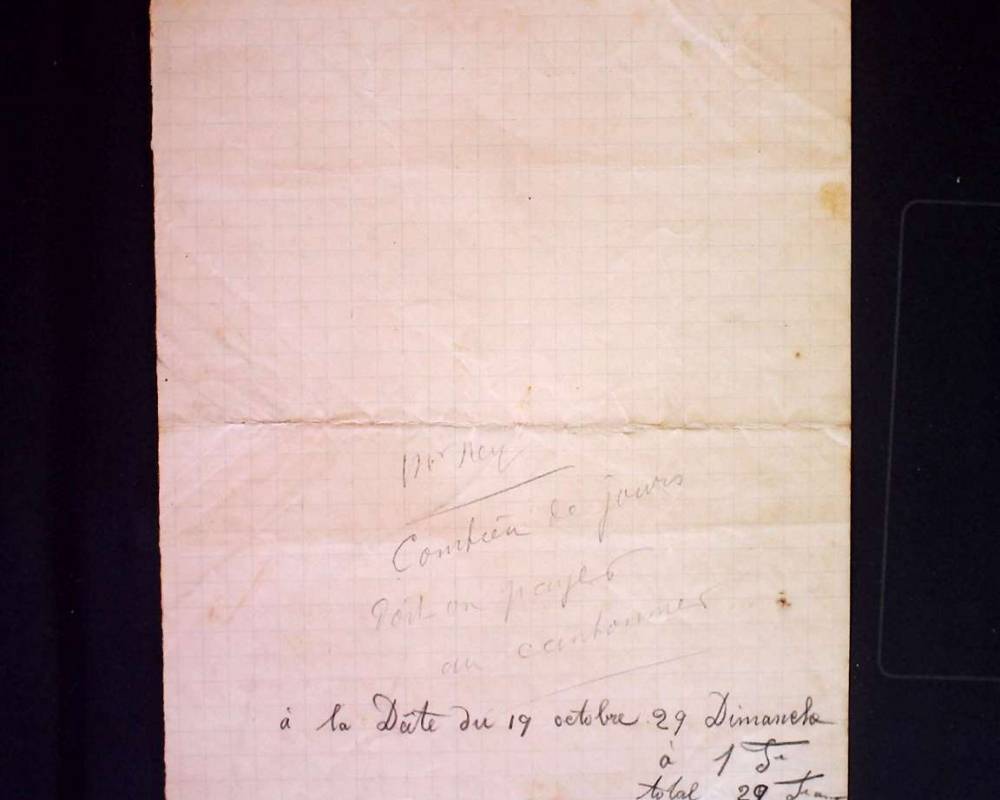 Mr Rey
Combien de jours
Doit-on payer
au cantonnier
à la Date du 19 octobre 29 Dimanche
à 1 Fr
total 29 Francs